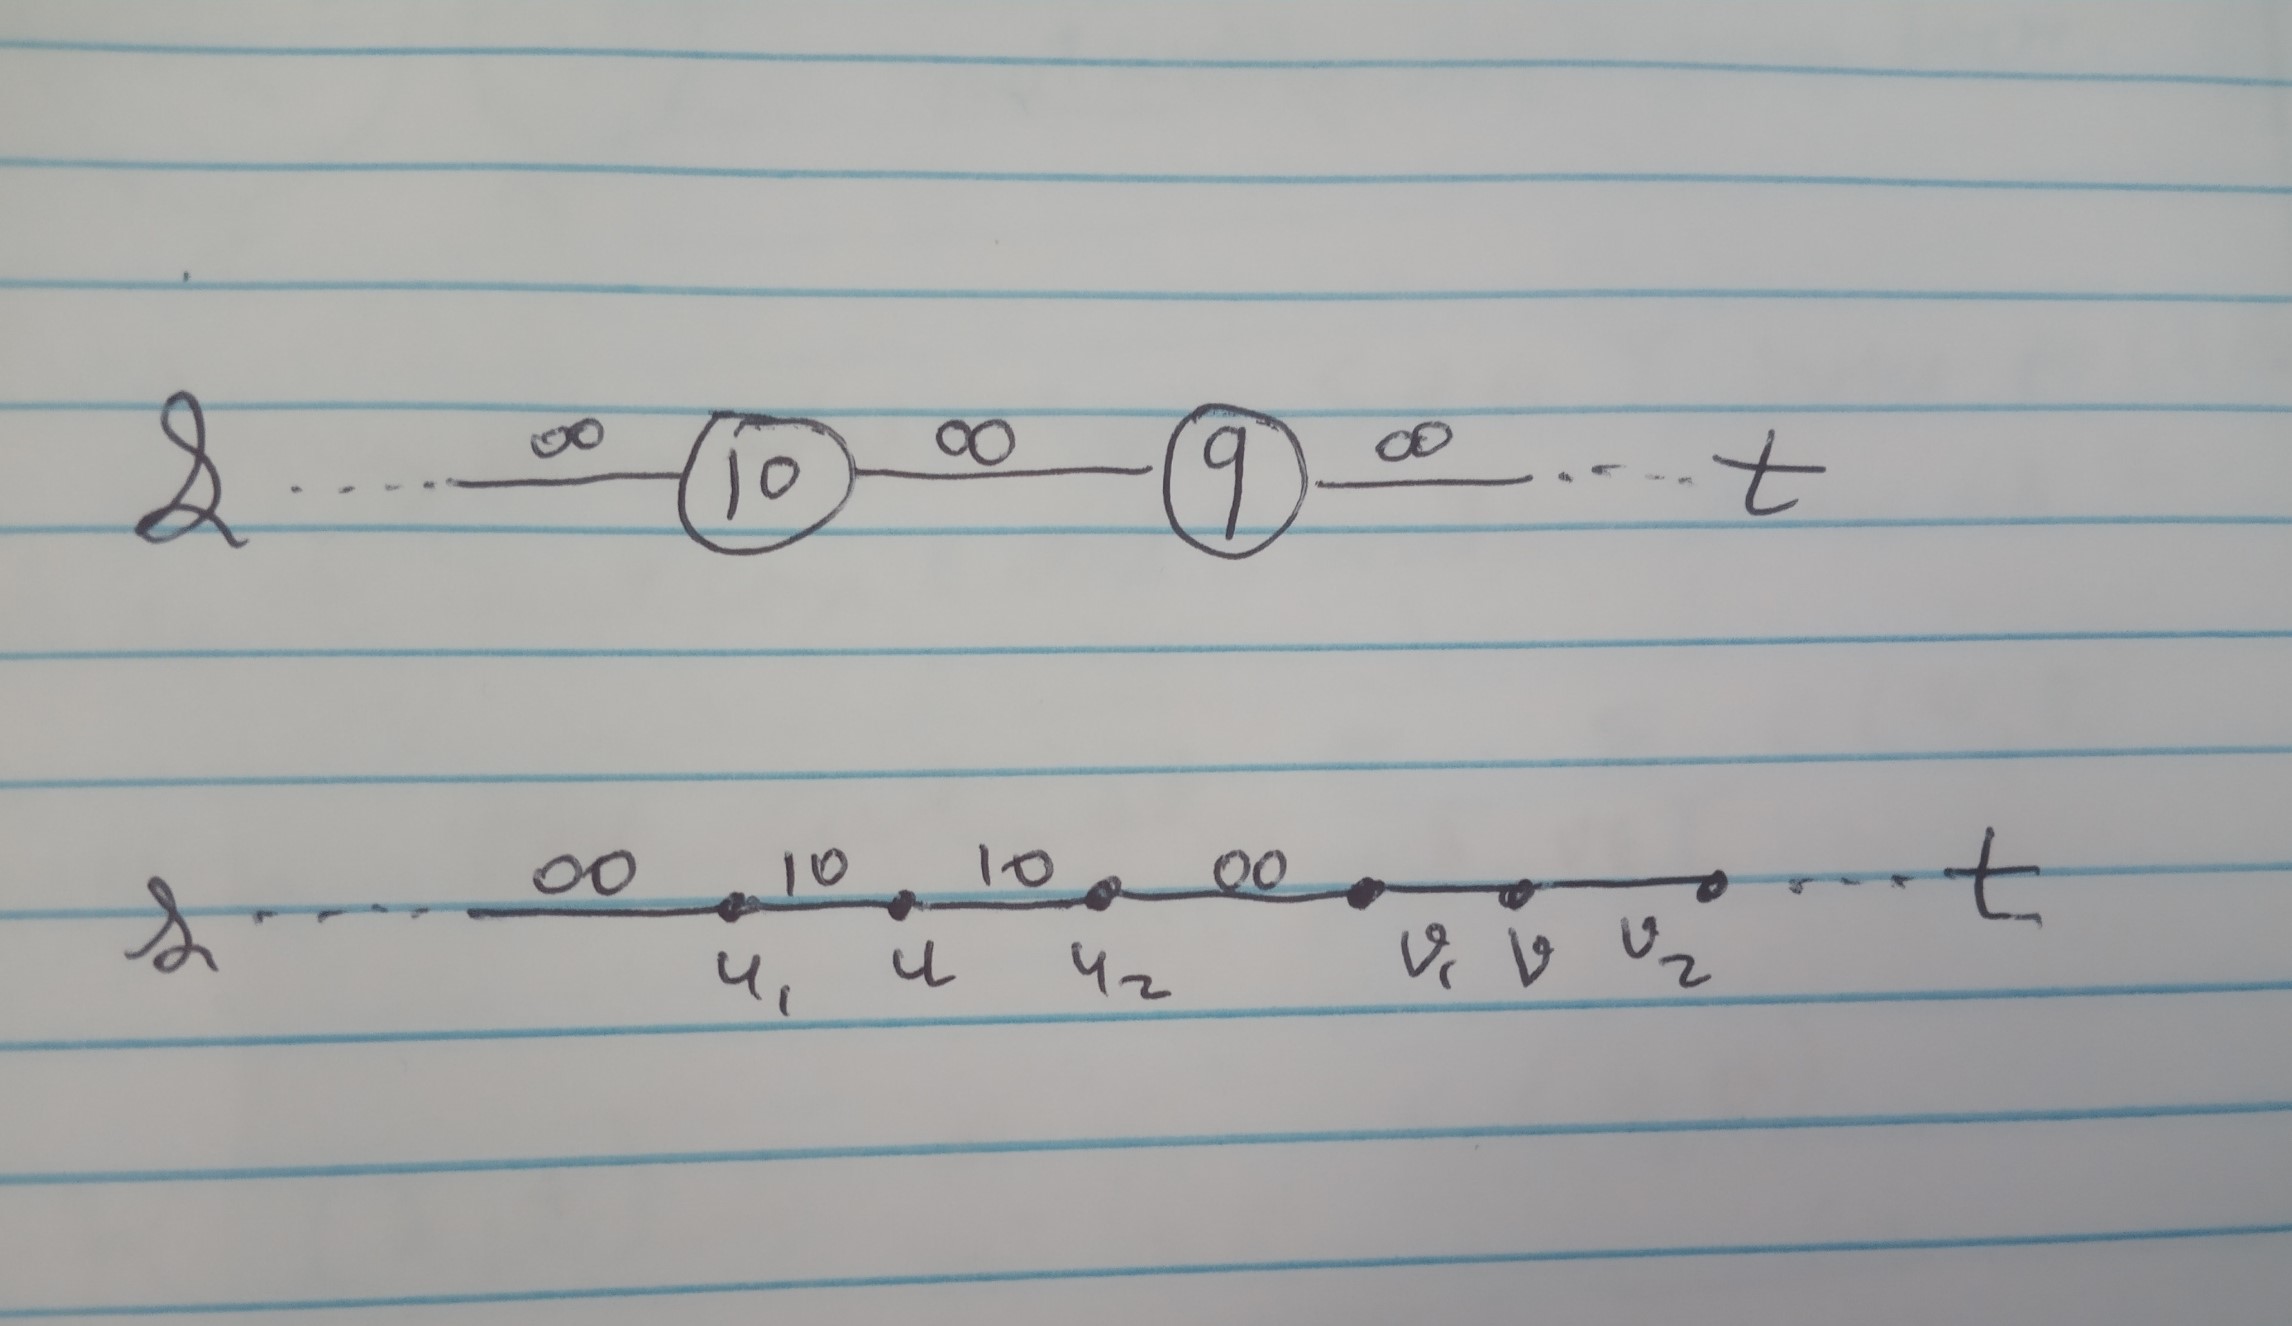 s ..... ∞ 10 ∞ 9 ∞ ..... t
s ..... ∞ 10 10 ∞ ..... t
u₁ u u₂ v₁ v v₂